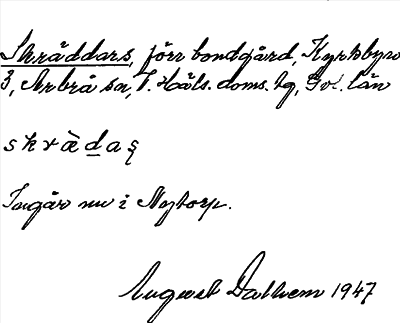 Skräddars, förr bondgård, Kyrkbyn
3, Arbrå sn, V. Häls. doms. tg, Gvl. län
skrä̀d̲aş
Ingår nu i Nytorp.
August Dalhem 1947